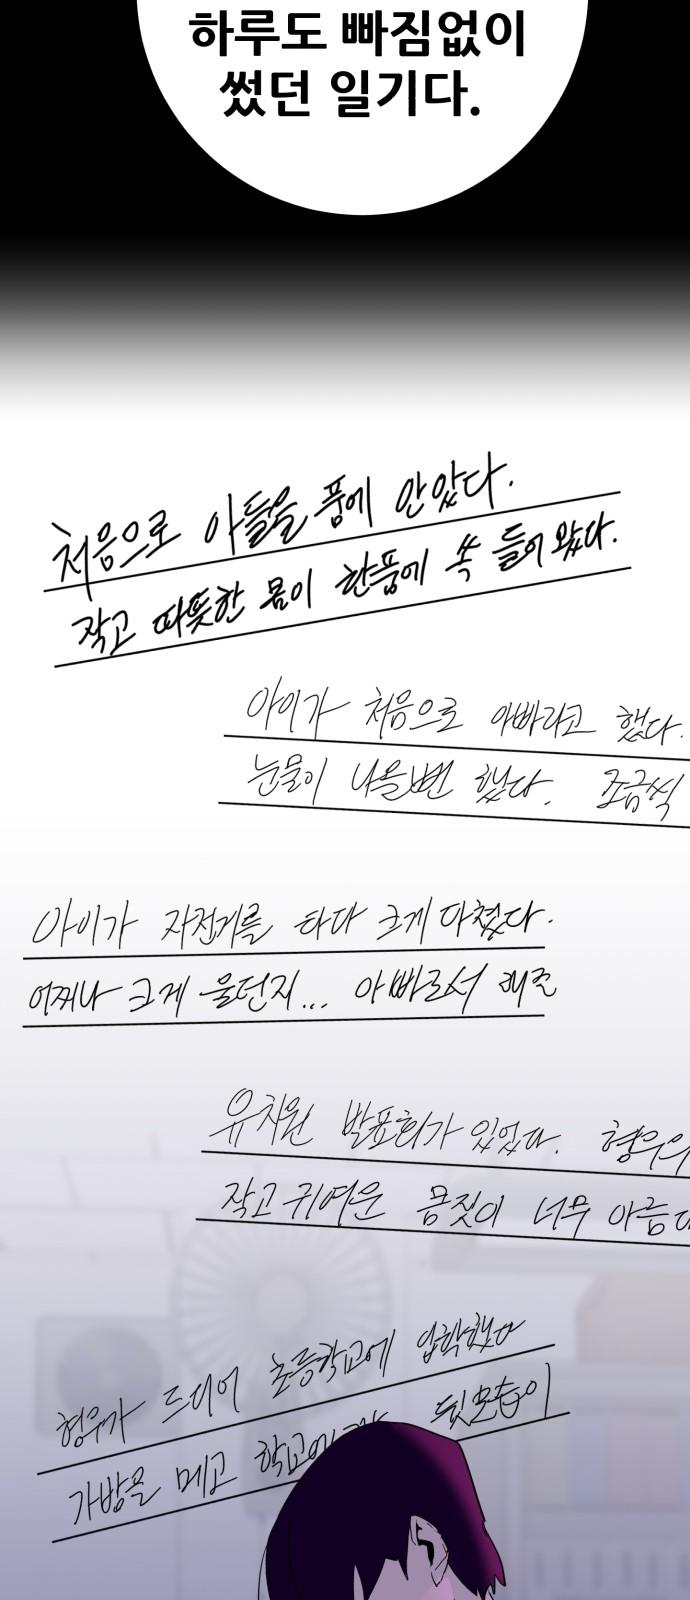 하루도 빠짐없이
썼던 일기다.
처음으로 아들을 품에 안았다.
작고 따뜻한 몸이 한품에 쏙 들어 왔다.
아이가 처음으로 아빠라고 했다.
눈물이 나올뻔 했다. 조금씩
아이가 자전거를 타다 크게 다쳤다.
어찌나 크게 울던지... 아빠로서 해준
유치원 발표회가 있었다. 형우의
작고 귀여운 몸짓이 너무 아름다
형우가 드디어 초등학교에 입학했다
가방을 메고 학교에 뒷모습이